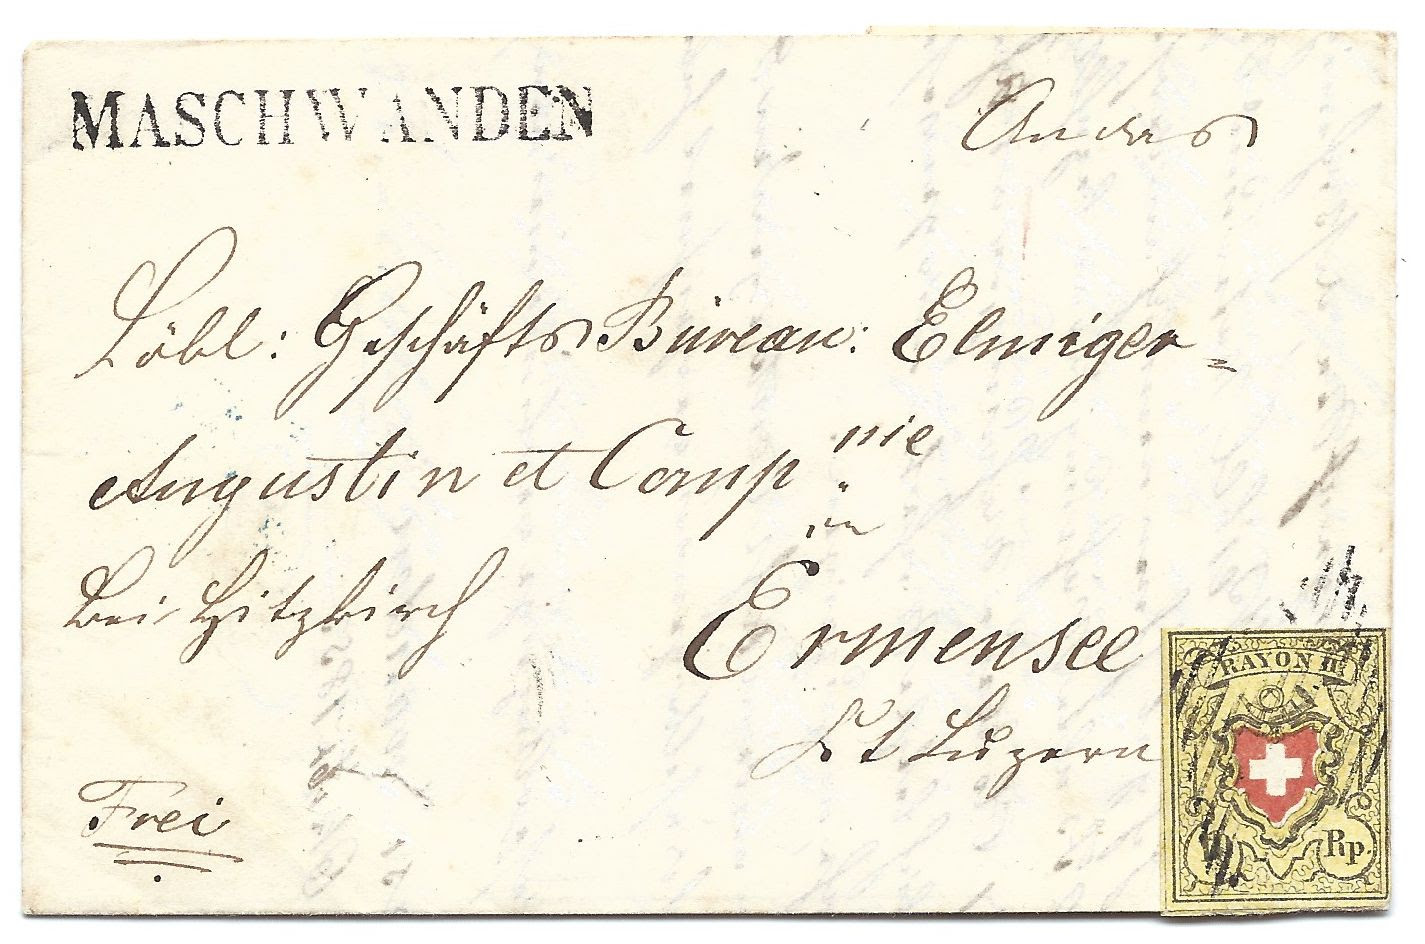 MASCHWANDEN
An das
Löbl: Geschäfts Büreau: Elmiger=
Augustin et Comp:nie
in
bei Hitzkirch
Ermensee
Kt Luzern
Frei
RAYON II.
Rp.